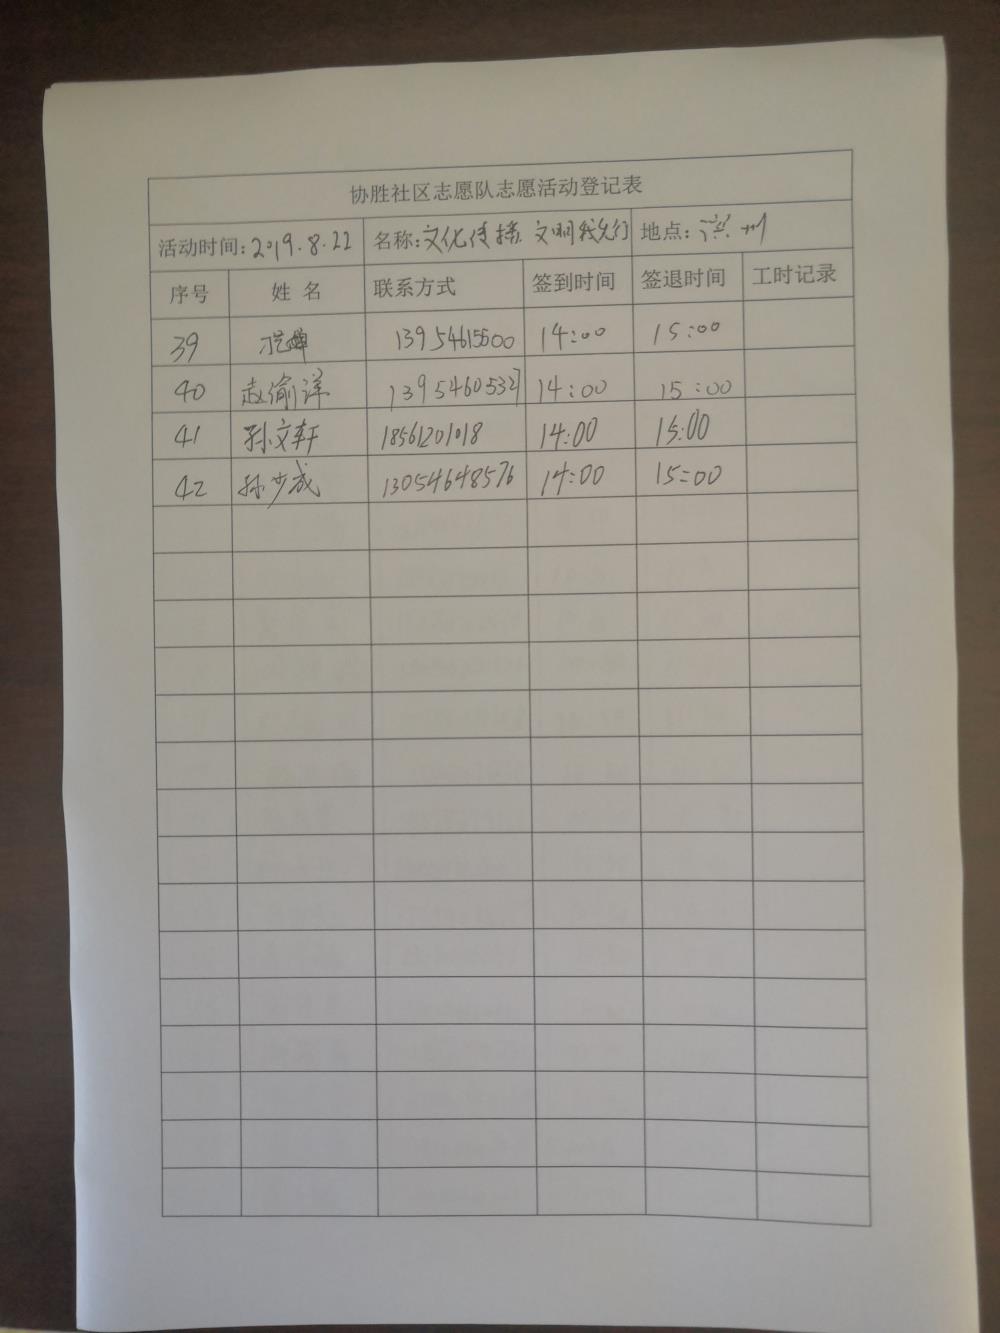 协胜社区志愿队志愿活动登记表
活动时间:2019.8.22 名称:文化传播 文明我先行 地点:
序号 姓名 联系方式 签到时间 签退时间 工时记录
39 13954615600 14:00 15:00
40 赵偷洋 13954605327 14:00 15:00
41 孙文轩 18561201018 14:00 15:00
42 孙少成 13054648576 14:00 15:00